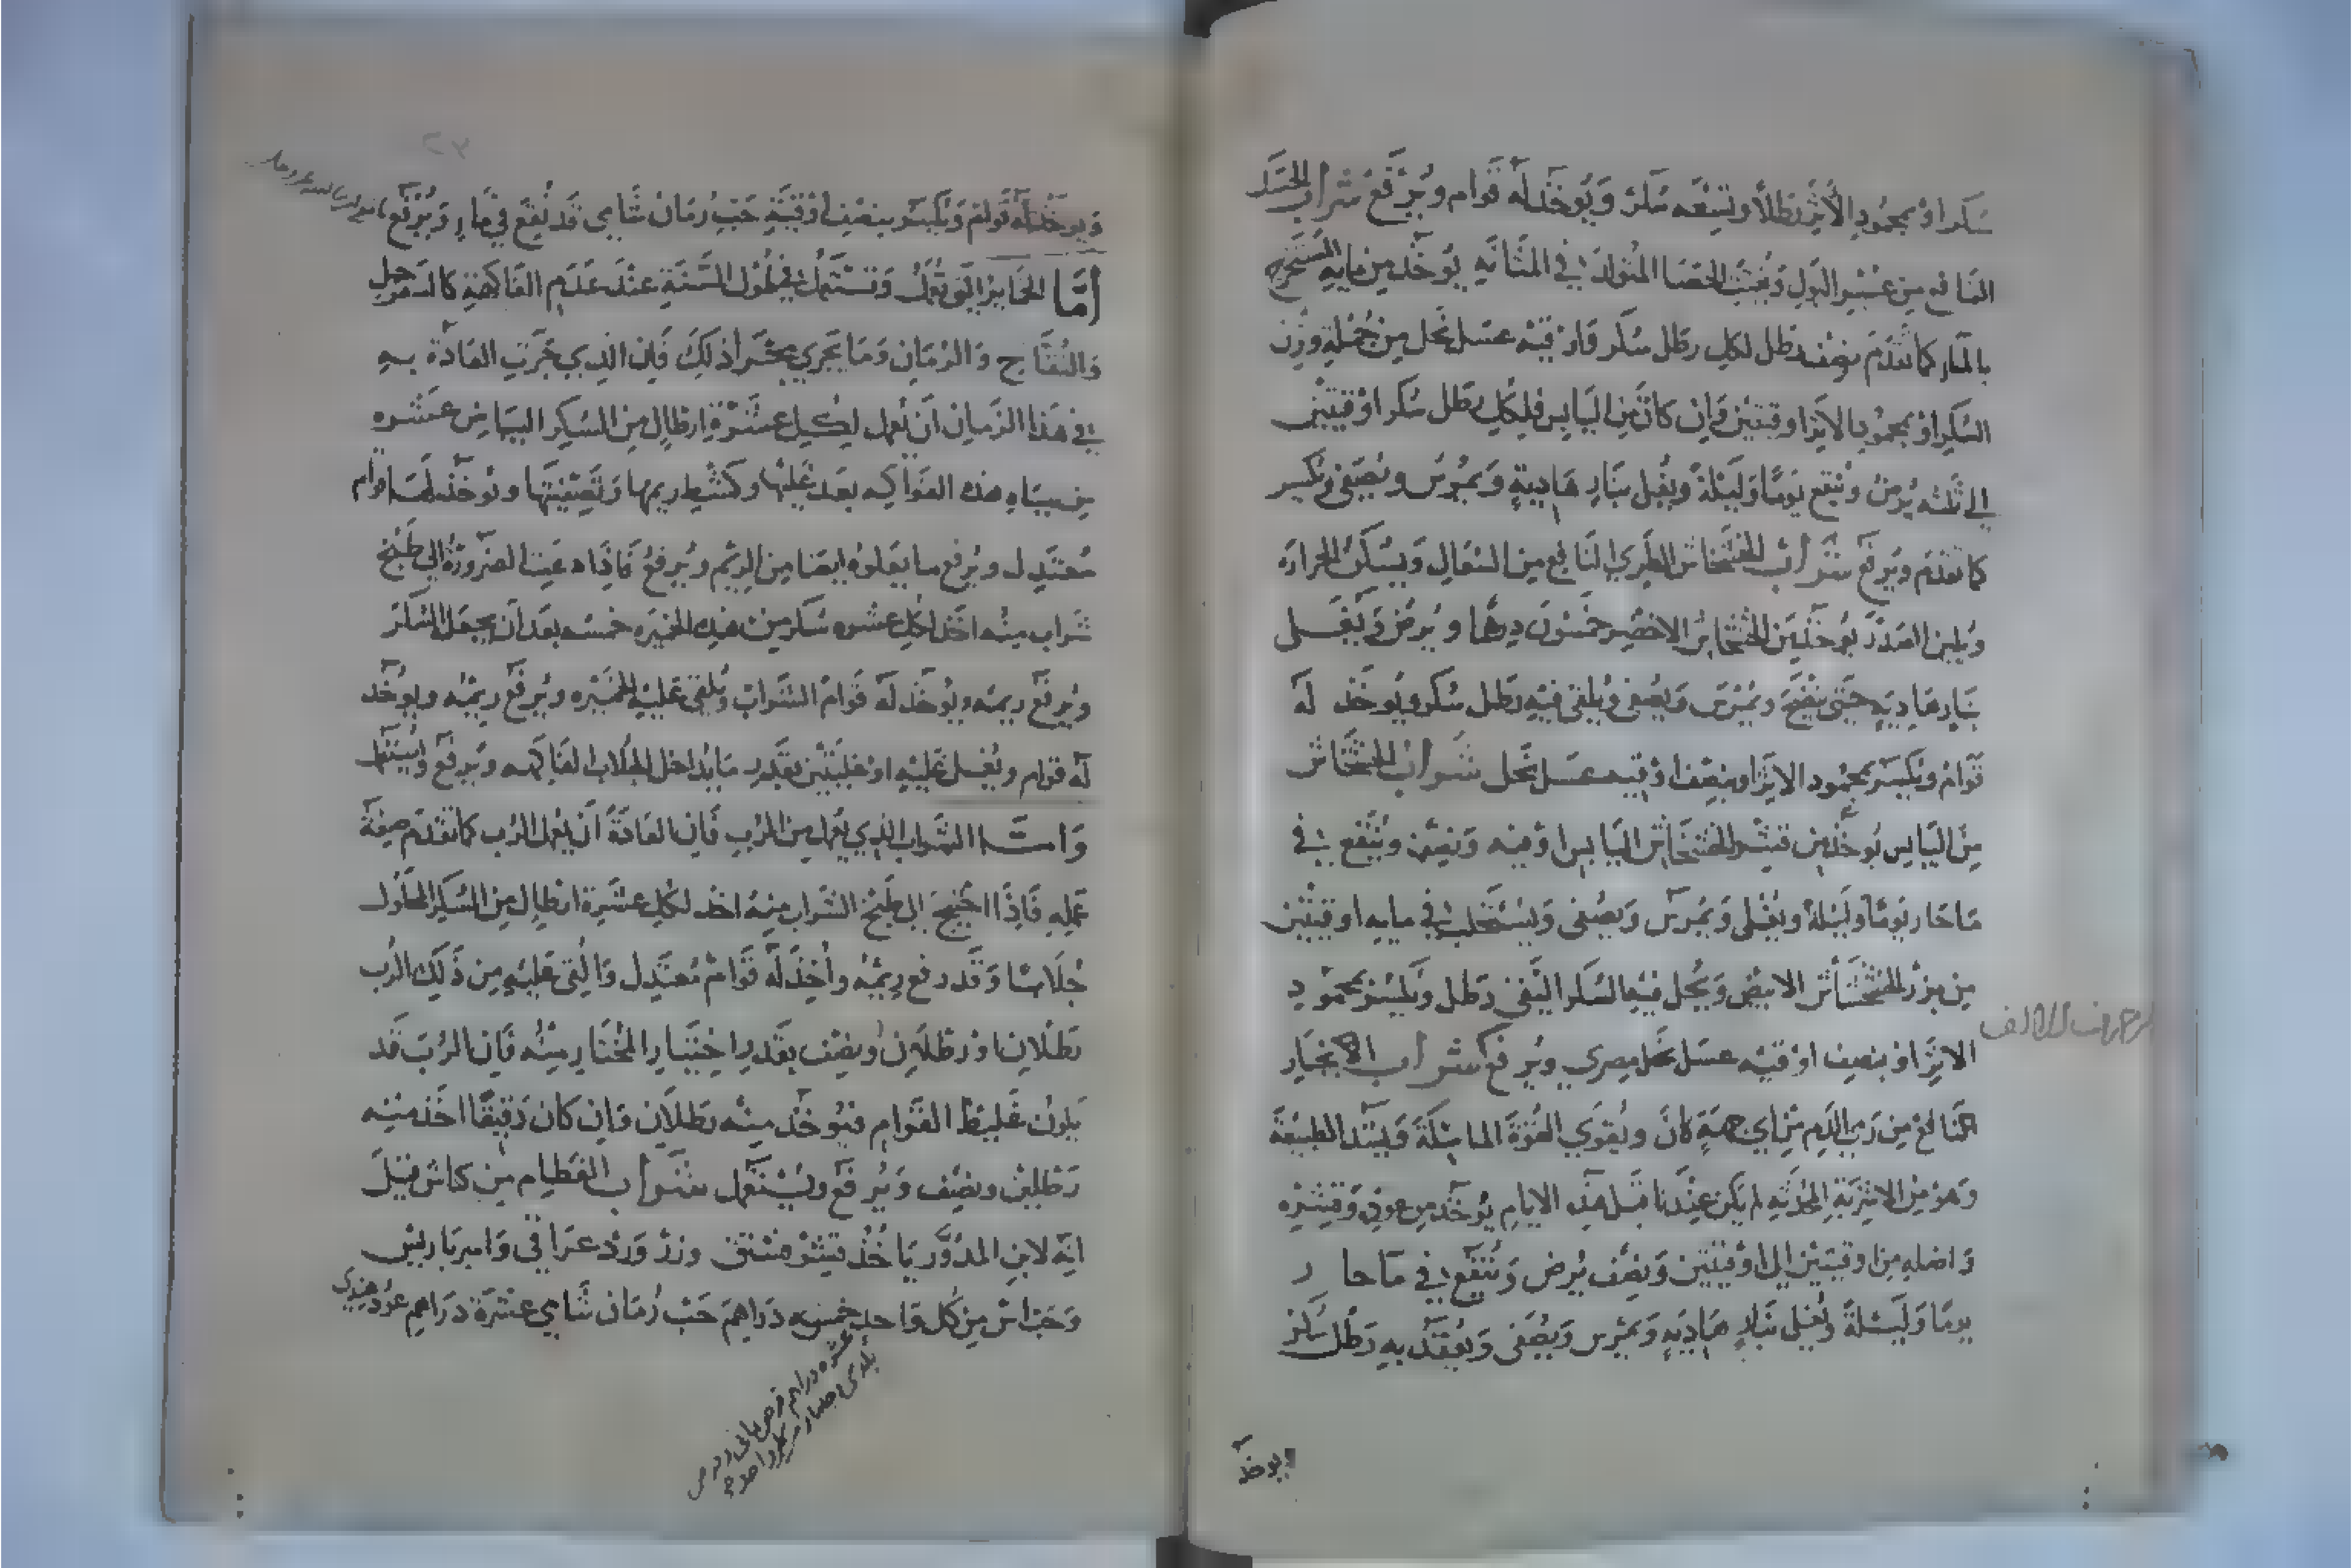 سكر او بمحمود الأترنطلا وتسعه سكر ويوخذ له قوام ويرفع شراب الحسك
النافع من عسر البول ويفتت الحصا المتولد في المثانه يوخذ من مايه المستخرج
بالماء كما تقدم نصف رطل لكل رطل سكر واوقيه عسل نحل من جملة وزن
السكر او بمحمود الاترا وقيتين وان كان من اليابس فلكل رطل سكر اوقيتين
الي ثلثه يرض وينقع يوما وليلة ويغلي بنار هاديةٍ ويمرس ويصفي ويكسر
كما تقدم ويرفع شراب الخشخاش الطري النافع من السعال ويسكن الحرارة
ويلين الصدر يوخذ من الخشخاش الاخضر خمسون درهما ويرض ويغلي
بنار هاديه حتى ينضج ويمرس ويصفي ويلقي فيه رطل سكر ويوخذ له
قوام ويكسر بمحمود الاترا وبنصف اوقيه عسل نحل شراب الخشخاش
من اليابس يوخذ من قشر الخشخاش اليابس اوقيه ونصف وينقع في
ما حار يوما وليلة ويغلي ويمرس ويصفي ويستحلب في مايه اوقيتين
من بزر الخشخاش الابيض ويحل فيه السكر النقي رطل ويكسر بمحمود
الاترا او بنصف اوقيه عسل نحل مصري ويرفع شراب الانجبار
النافع من رمي الدم من اي جهة كان ويقوي القوة الماسكة ويشد الطبيعة
وهو من الاشربة المحدثه لم يكن عندنا قبل هذه الايام يوخذ من عروقه وقشره
واصله من اوقيتين الي اوقيتين ونصف يرض وينقع في ما حار
يوما وليلة ويغلي بنار هاديه ويمرس ويصفى ويعقد به رطل سكر
ويوخذ
ويوخذ له قوام ويكسر بنصف اوقية حب رمان شامي قد نقع في ماء ويرفع
أما الخماير التي تعمل وتستعمل في طول السنة عند عدم الفاكهة كالسفرجل
والتفاح والرمان وما يجري مجرا ذلك فان الذي جرت العادة به
في هذا الزمان ان يعمل لكل عشرة ارطال من السكر البياض عشره
من مياه هذه الفواكه بعد غليها وكشط ريمها وتصفيتها ويوخذ لها قوام
معتدل ويرفع ما يعلوه ايضا من الريم ويرفع فاذا دعت الضرورة الي طبخ
شراب منه اخذ لكل عشره سكر من هذه الخميره خمسه بعد ان يجعل السكر
ويرفع ريمه ويوخذ له قوام الشراب ويلقي عليه الخميره ويرفع ريمه ويوخذ
له قوام ويغلي غليه او غليتين بقدر ما يداخل الجلاب الفاكهه ويرفع
واما الشراب الذي يعمل من الرب فان العادة ان يعمل الرب كما تقدم صفة
عمله فاذا احتيج الي طبخ الشراب منه اخذ لكل عشرة ارطال من السكر المحلول
جلابا وقد رفع ريمه وأخذ له قوام معتدل والقي عليه من ذلك الرب
رطلان او رطلان ونصف بقدر اختيار المختار منه فان الرب قد
يكون غليظ القوام فيوخذ منه رطلان وان كان رقيقا اخذ منه
رطلين ونصف ويرفع ويستعمل شراب الفطام من كناش قيل
انه لابن المدور ياخذ قشر فستق وزر ورد عراقي وامبرباريس
وحب اس من كل واحد خمسه دراهم حب رمان شامي عشرة دراهم عود هندي